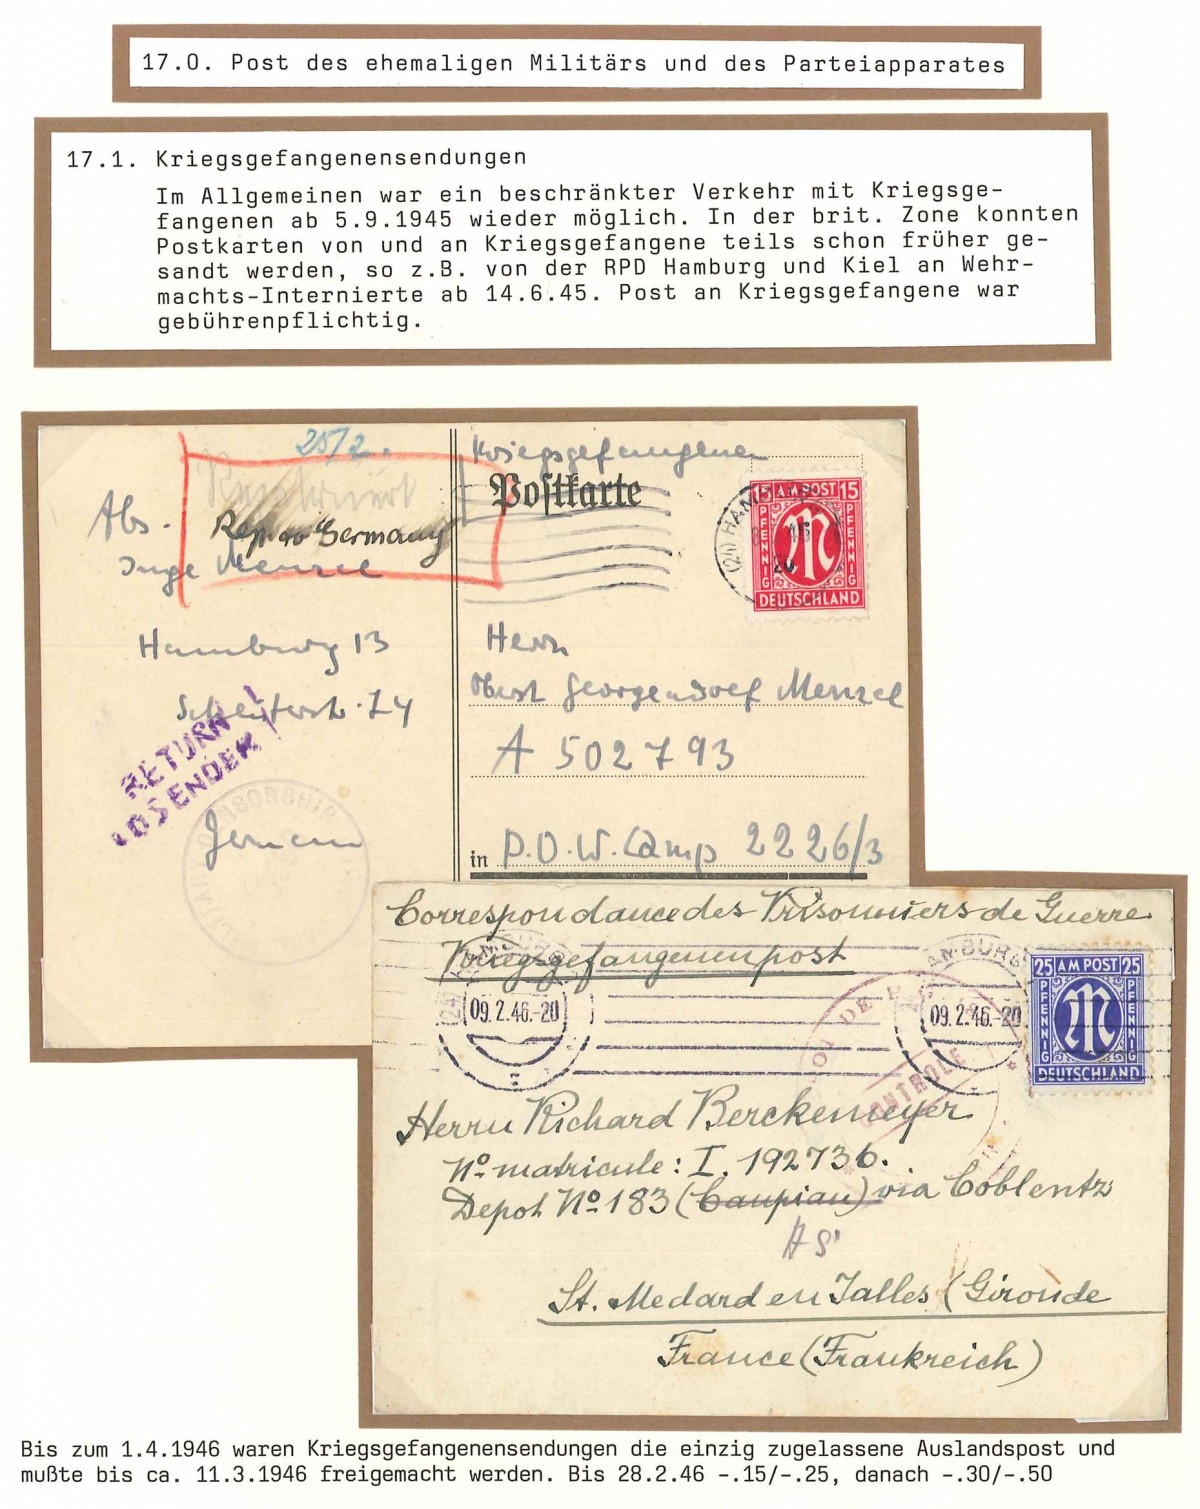 17.0. Post des ehemaligen Militärs und des Parteiapparates
17.1. Kriegsgefangenensendungen
Im Allgemeinen war ein beschränkter Verkehr mit Kriegsge-
fangenen ab 5.9.1945 wieder möglich. In der brit. Zone konnten
Postkarten von und an Kriegsgefangene teils schon früher ge-
sandt werden, so z.B. von der RPD Hamburg und Kiel an Wehr-
machts-Internierte ab 14.6.45. Post an Kriegsgefangene war
gebührenpflichtig.
25/2.
Abs.
Germany
Inge Menzel
Hamburg 13
RETURN
TO SENDER
CENSORSHIP
Kriegsgefangenen
Postkarte
15 AM POST 15
PFENNIG
M
PFENNIG
DEUTSCHLAND
Herrn
Oberst Georgendorf Menzel
A 502793
in P.O.W. Camp 2226/3
Correspondance des Prisonniers de Guerre
Kriegsgefangenenpost
HAMBURG
09.2.46.-20
HAMBURG
09.2.46.-20
25 AM POST 25
PFENNIG
M
PFENNIG
DEUTSCHLAND
CONTROLE
Herrn Richard Berckemeyer
No matricule: I. 192736.
Depot No 183 (Caupian) via Coblentz
St. Medard en Jalles (Gironde
France (Frankreich)
Bis zum 1.4.1946 waren Kriegsgefangenensendungen die einzig zugelassene Auslandspost und
mußte bis ca. 11.3.1946 freigemacht werden. Bis 28.2.46 -.15/-.25, danach -.30/-.50